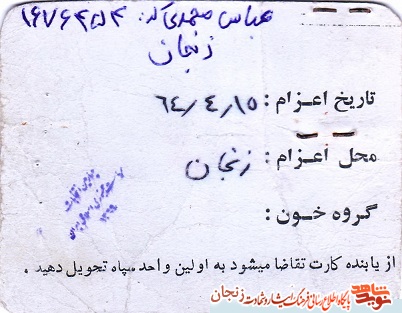 عباس محمدی کد: ۱۶۷۶۴۵۴
زنجان
تاریخ اعزام: ۶۴/۴/۱۵
محل اعزام: زنجان
گروه خون:
از یابنده کارت تقاضا میشود به اولین واحد سپاه تحویل دهید.
نوید شاهد پایگاه اطلاع رسانی فرهنگ ایثار و شهادت زنجان